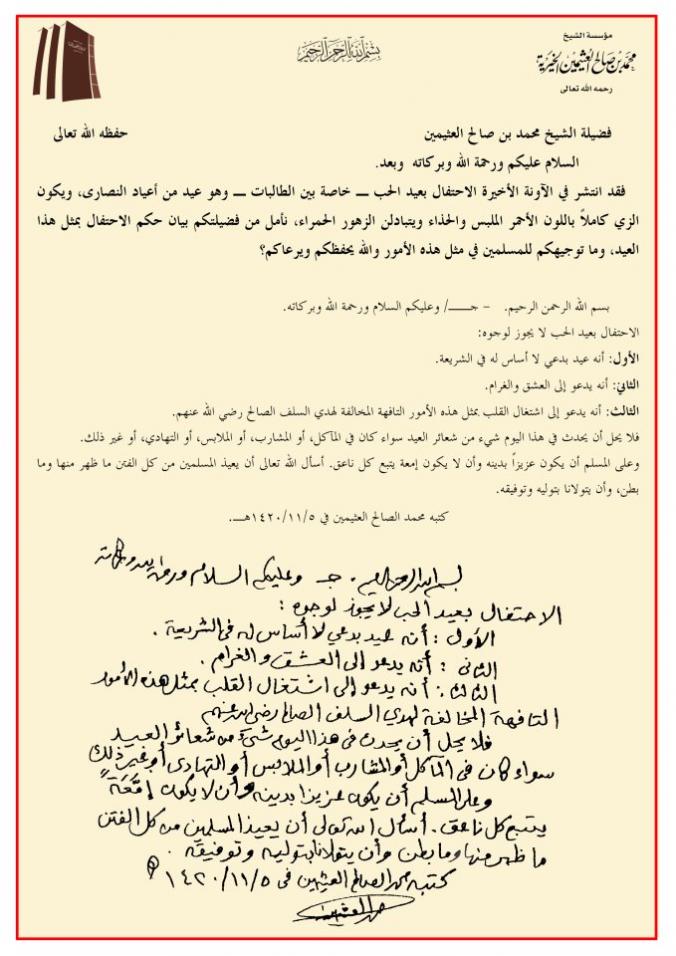 مؤسسة الشيخ
محمد بن صالح العثيمين الخيرية
رحمه الله تعالى
بسم الله الرحمن الرحيم
فضيلة الشيخ محمد بن صالح العثيمين حفظه الله تعالى
السلام عليكم ورحمة الله وبركاته وبعد.
فقد انتشر في الآونة الأخيرة الاحتفال بعيد الحب ــ خاصة بين الطالبات ــ وهو عيد من أعياد النصارى، ويكون
الزي كاملاً باللون الأحمر الملبس والحذاء ويتبادلن الزهور الحمراء، نأمل من فضيلتكم بيان حكم الاحتفال بمثل هذا
العيد، وما توجيهكم للمسلمين في مثل هذه الأمور والله يحفظكم ويرعاكم؟
بسم الله الرحمن الرحيم. - جـــــ/ وعليكم السلام ورحمة الله وبركاته.
الاحتفال بعيد الحب لا يجوز لوجوه:
الأول: أنه عيد بدعي لا أساس له في الشريعة.
الثاني: أنه يدعو إلى العشق والغرام.
الثالث: أنه يدعو إلى اشتغال القلب بمثل هذه الأمور التافهة المخالفة لهدي السلف الصالح رضي الله عنهم.
فلا يحل أن يحدث في هذا اليوم شيء من شعائر العيد سواء كان في المآكل، أو المشارب، أو الملابس، أو التهادي، أو غير ذلك.
وعلى المسلم أن يكون عزيزاً بدينه وأن لا يكون إمعة يتبع كل ناعق. أسأل الله تعالى أن يعيذ المسلمين من كل الفتن ما ظهر منها وما
بطن، وأن يتولانا بتوليه وتوفيقه.
كتبه محمد الصالح العثيمين في ١٤٢٠/١١/٥هــ.
بسم الله الرحمن الرحيم . جـ وعليكم السلام ورحمة الله وبركاته
الاحتفال بعيد الحب لا يجوز لوجوه :
الأول : أنه عيد بدعي لا أساس له في الشريعة .
الثاني : أنه يدعو إلى العشق والغرام .
الثالث : أنه يدعو إلى اشتغال القلب بمثل هذه الأمور
التافهة المخالفة لهدي السلف الصالح رضي الله عنهم
فلا يحل أن يحدث في هذا اليوم شيء من شعائر العيد
سواء كان في المآكل أو المشارب أو الملابس أو التهادي أو غير ذلك
وعلى المسلم أن يكون عزيزا بدينه وأن لا يكون إمَّعَةً
يتبع كل ناعق . أسأل الله تعالى أن يعيذ المسلمين من كل الفتن
ما ظهر منها وما بطن وأن يتولانا بتوليه وتوفيقه .
كتبه محمد الصالح العثيمين في ١٤٢٠/١١/٥ هـ
محمد العثيمين